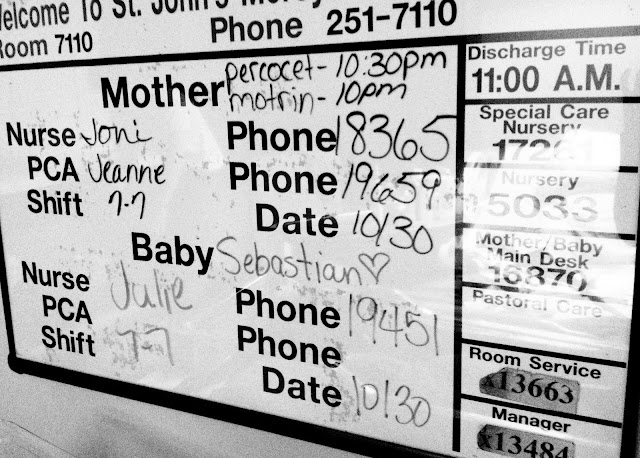 Welcome To St. John's Mercy
Room 7110
Phone 251-7110
Mother percocet - 10:30pm
motrin - 10pm
Nurse Joni Phone 18365
PCA Jeanne Phone 19659
Shift 7-7 Date 10/30
Baby Sebastian♡
Nurse Julie Phone 19451
PCA Phone
Shift 7-7 Date 10/30
Discharge Time
11:00 A.M.
Special Care
Nursery
Nursery
5033
Mother/Baby
Main Desk
16870
Pastoral Care
Room Service
x13663
Manager
x13484